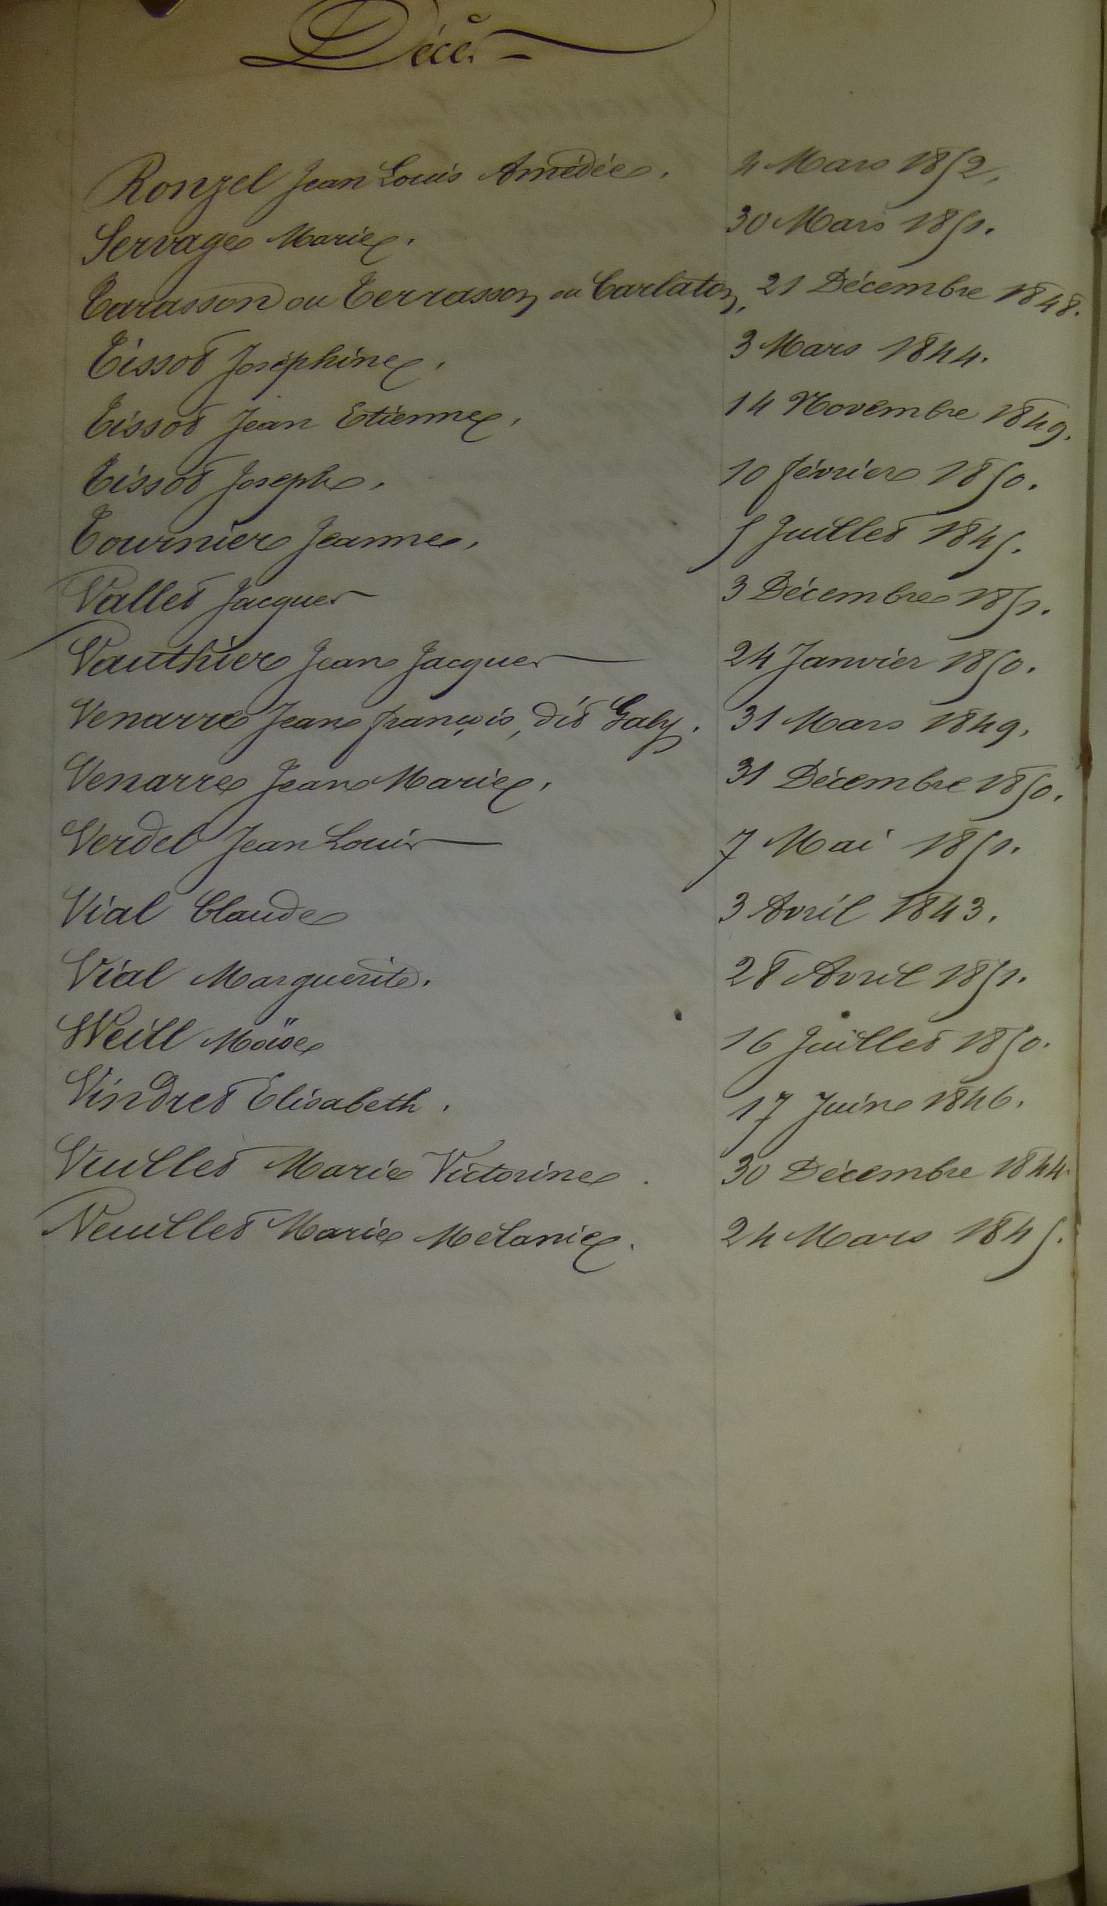 Décès
Ronzel Jean Louis Amédée. 4 Mars 1852.
Servage Marie. 30 Mars 1851.
Tarasson ou Terrasson ou Carlaton, 21 Décembre 1848.
Tissot Joséphine. 3 Mars 1844.
Tissot Jean Etienne. 14 Novembre 1849.
Tissot Joseph. 10 février 1850.
Tournier Jeanne. 5 Juillet 1845.
Vallet Jacques 3 Décembre 1851.
Vauthier Jean Jacques 24 Janvier 1850.
Venarre Jean françois, dit Gaby. 31 Mars 1849.
Venarre Jean Marie. 31 Décembre 1850.
Verdel Jean Louis 7 Mai 1851.
Vial Claude 3 Avril 1843.
Vial Marguerite. 28 Avril 1851.
Weill Moïse 16 Juillet 1850.
Vindret Elisabeth. 17 Juin 1846.
Vuillet Marie Victorine. 30 Décembre 1844.
Neuillet Marie Mélanie. 24 Mars 1845.